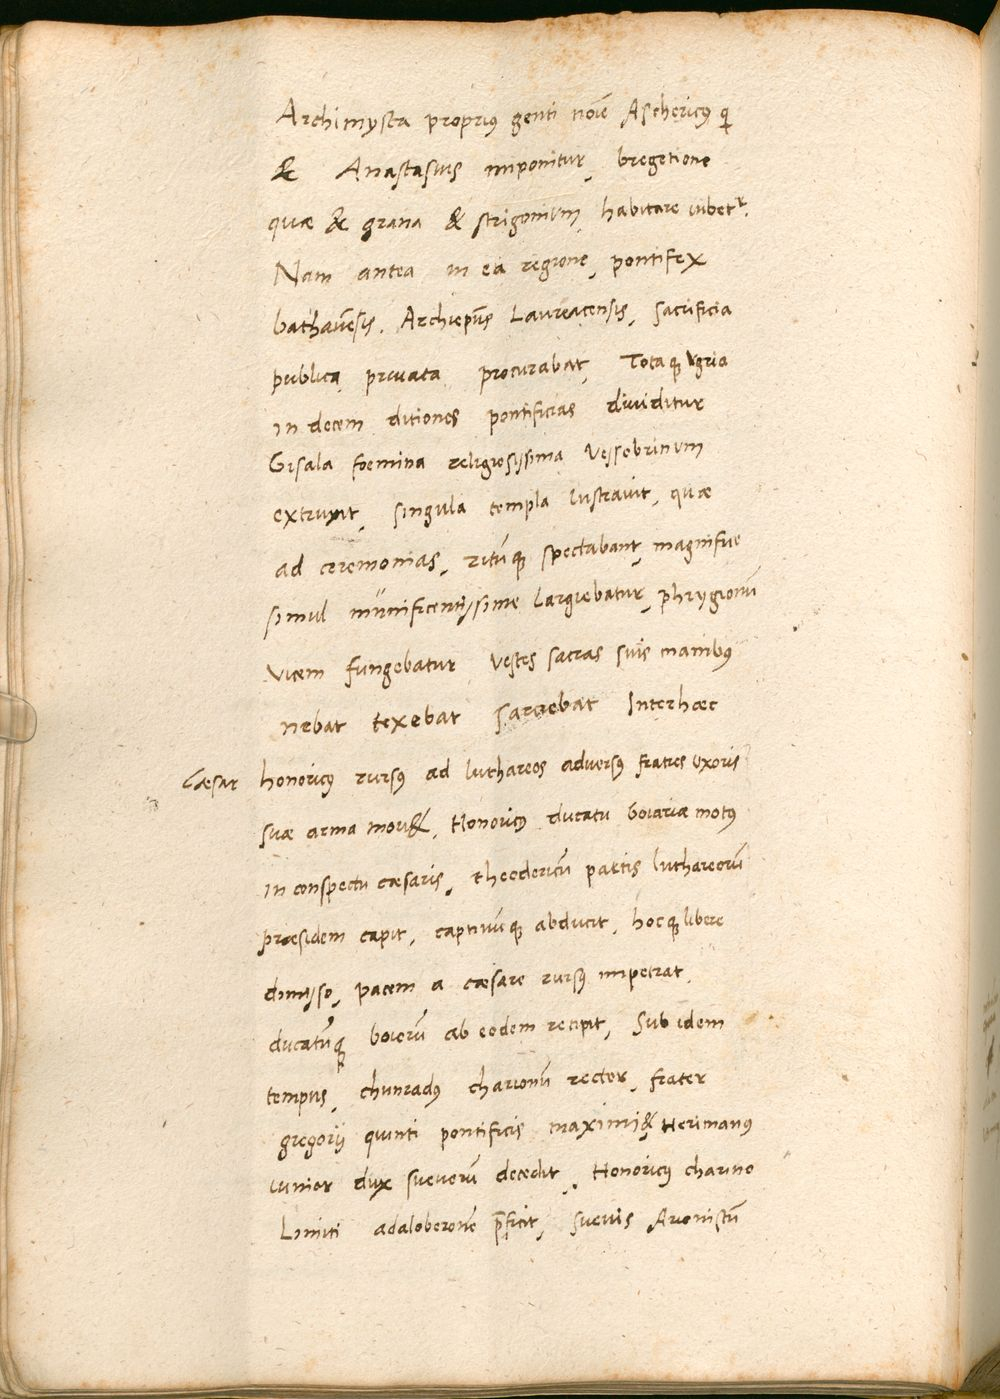 Archimysta proprius genti noīe Aschericus qi
& Anastasius imponitur, bregetione
quæ & grana & strigonium, habitare iubetr.
Nam antea in ea regione, pontifex
bathavēsis. Archiepūs Laureacensis, sacrificia
publica privata procurabat, Totaq; vgria
in decem ditiones pontificias dividitur
Gisala foemina religiosissima Vessebrinum
extruxit, singula templa lustravit, quæ
ad ceremonias, ritūq; spectabant, magnifice
simul munificentissime largiebatur, phrygionū
vicem fungebatur vestes sacras suis manibus
nebat texebat sarciebat Interhæc
Cæsar honoricus rursus ad luthareos adversus fratres uxoris
suæ arma mov&, Honoricus ducatu boiariæ motus
in conspectu cæsaris, theodericū partis luthareorū
præsidem capit, captivūq; abducit, hocq; libere
dimisso, pacem a cæsare rursus impetrat,
ducatūq; boiorū ab eodem recipit, Sub idem
tempus, chunradus charionū rector, frater
gregorij quinti pontificis maximi & Herimanus
iunior dux suevorū decedit, Honoricus charino
Limiti adaloberonē p̄ficit, suevis Arionistū